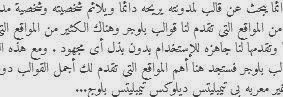 دائمًا يبحث عن قالب لمدونته يريحه دائمًا ويلائم شخصيته وشخصية مد
من المواقع التى تقدم لنا قوالب بلوجر وهناك الكثير من المواقع التى
وتقدمها لنا جاهزه للإستخدام بدون بذل أى مجهود . ومع هذه ال
لب بلوجر فستجد هنا أهم المواقع التى تقدم لك أجمل القوالب دو
غير معربه بى تيمبليتس ديلوكس تيمبليتس بلوج...